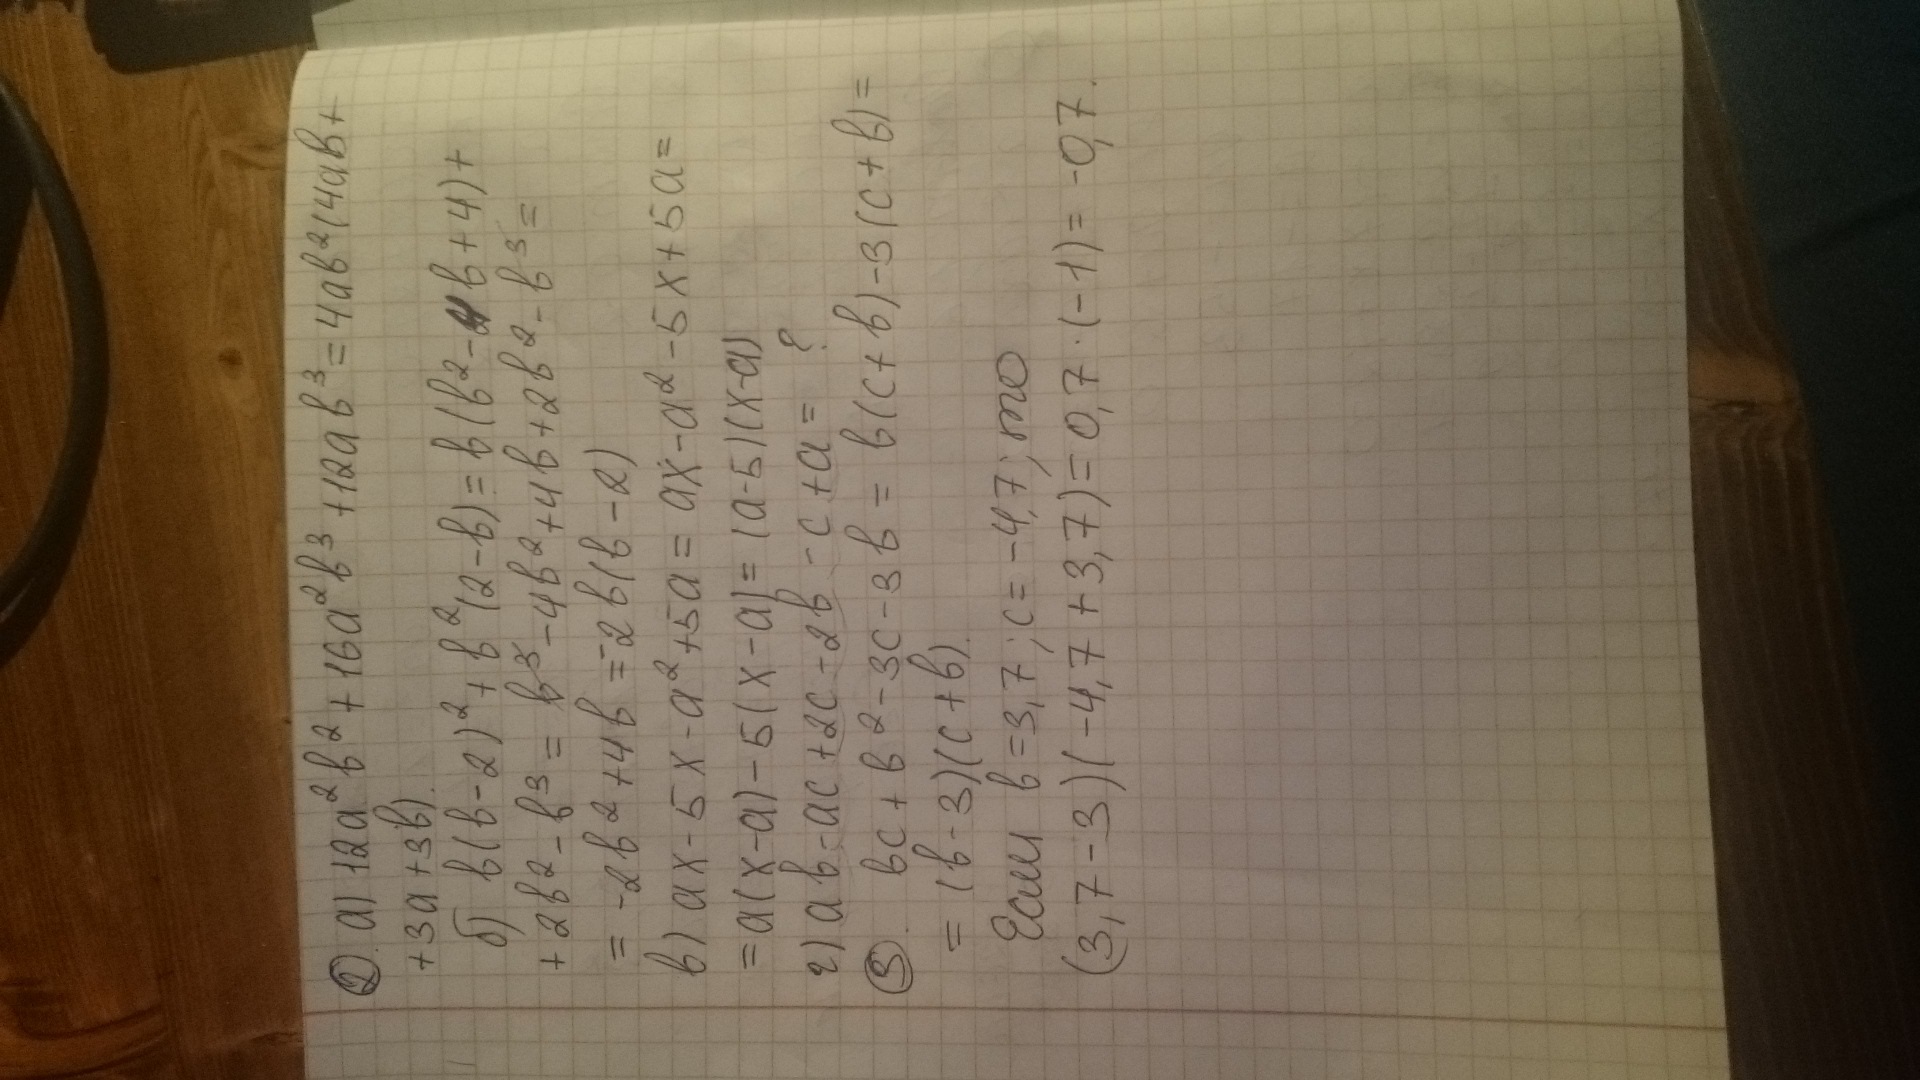 2. а) 12a²b² + 16a²b³ + 12ab³ = 4ab²(4ab +
+ 3a + 3b).
б) b(b-2)² + b²(2-b) = b(b² - 4b + 4) +
+ 2b² - b³ = b³ - 4b² + 4b + 2b² - b³ =
= -2b² + 4b = -2b(b-2)
в) ax - 5x - a² + 5a = ax - a² - 5x + 5a =
= a(x-a) - 5(x-a) = (a-5)(x-a)
г) ab - ac + 2c - 2b - c + a = ?
3. bc + b² - 3c - 3b = b(c+b) - 3(c+b) =
= (b-3)(c+b).
Если b = 3,7; c = -4,7; то
(3,7-3)(-4,7+3,7) = 0,7·(-1) = -0,7.